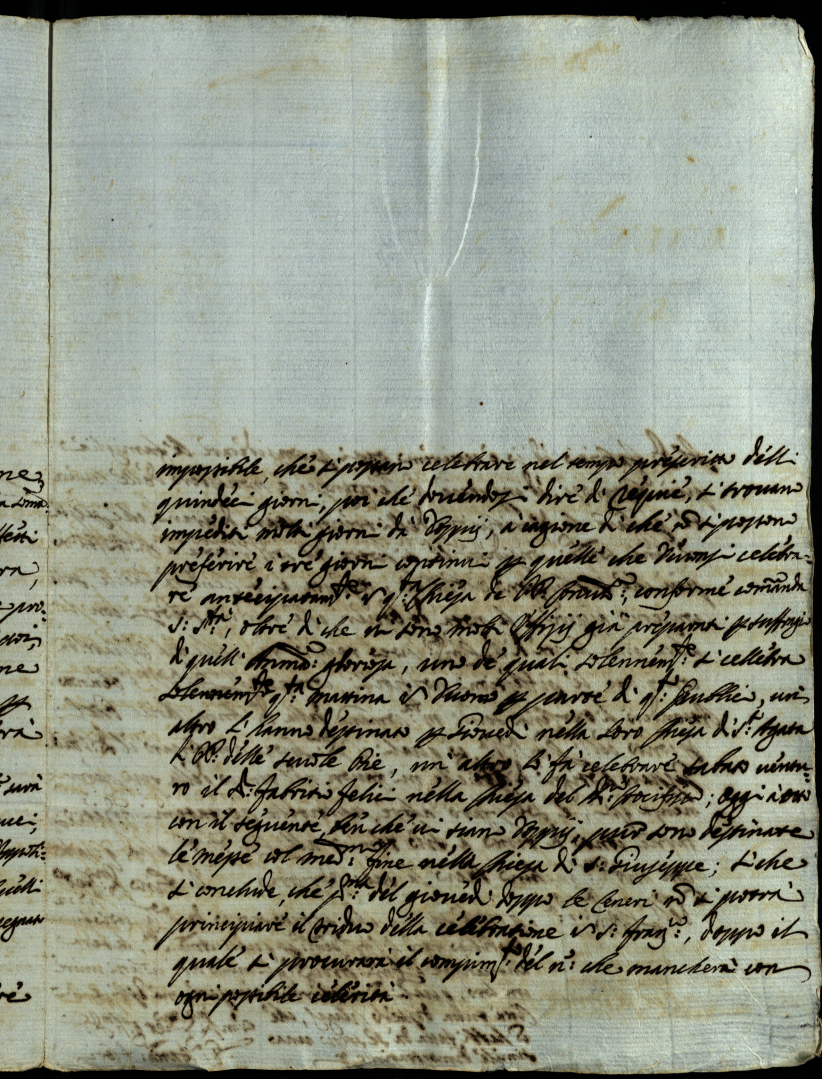 ne
ra,
e pro-
ne
impossibile, che si possan celebrare nel tempo prescritto delli
quindeci giorni, poi che dovendosi dire di requie, si trovan
impediti molti giorni da Doppij, a cagione di che nõ si posson
preferire i tre giorni continui p quelle che devonsi celebra-
re antecipatam.te in q.ta Chiesa de PP. Franc.ni, conforme comãnda
S: S.tà, oltre di che vi sono molti Offizij già preparati p suffragio
di quell' Anima gloriosa, uno de quali solennem.te si cellebra
solennem.te q.ta mattina in Duomo p parte di q.to Publico, un'
altro si hanno destinato p Giovedì nella loro Chiesa di S.t' Agata
li PP. delle scuole Pie, un' altro lo fà celebrare sabato ventu-
ro il S.r Fabritio Felici nella Chiesa del S.mo Crocifisso; oggi à otto
con il seguente, ben che vi sian Doppij, pure sono destinate
le messe col med.mo fine nella Chiesa di S: Giuseppe; si che
si conclude, che p.ma del giovedì doppo le Ceneri nõ si potrà
principiare il triduo della celebratione in S: Franc.o, doppo il
quale si procurarà il compim.to del n.o che mancherà con
ogni possibile celerità